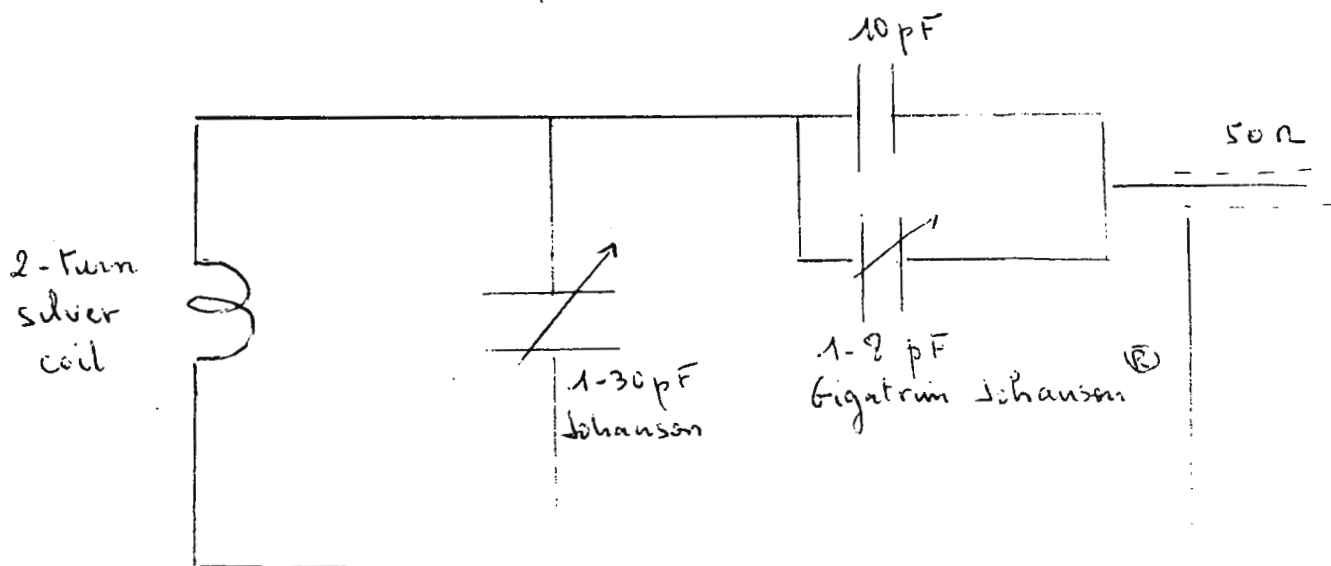 10 pF
50 Ω
2-turn
silver
coil
1-30 pF
Johanson
1-2 pF
Gigatrim Johanson ®